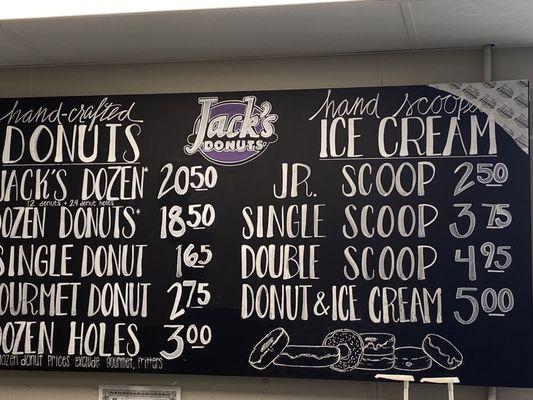 hand-crafted
DONUTS
JACK'S DOZEN* 20 50
12 donuts + 24 donut holes
DOZEN DONUTS* 18 50
SINGLE DONUT 1 65
GOURMET DONUT 2 75
DOZEN HOLES 3 00
dozen donut prices exclude gourmet, fritters
Jack's
DONUTS
hand scooped
ICE CREAM
JR. SCOOP 2 50
SINGLE SCOOP 3 75
DOUBLE SCOOP 4 95
DONUT & ICE CREAM 5 00